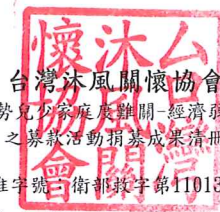 台灣沐風關懷協會
勢兒少家庭度難關-經濟
之募款活動捐募成果清冊
准字號：衛部救字第11013
台灣沐風關懷協會